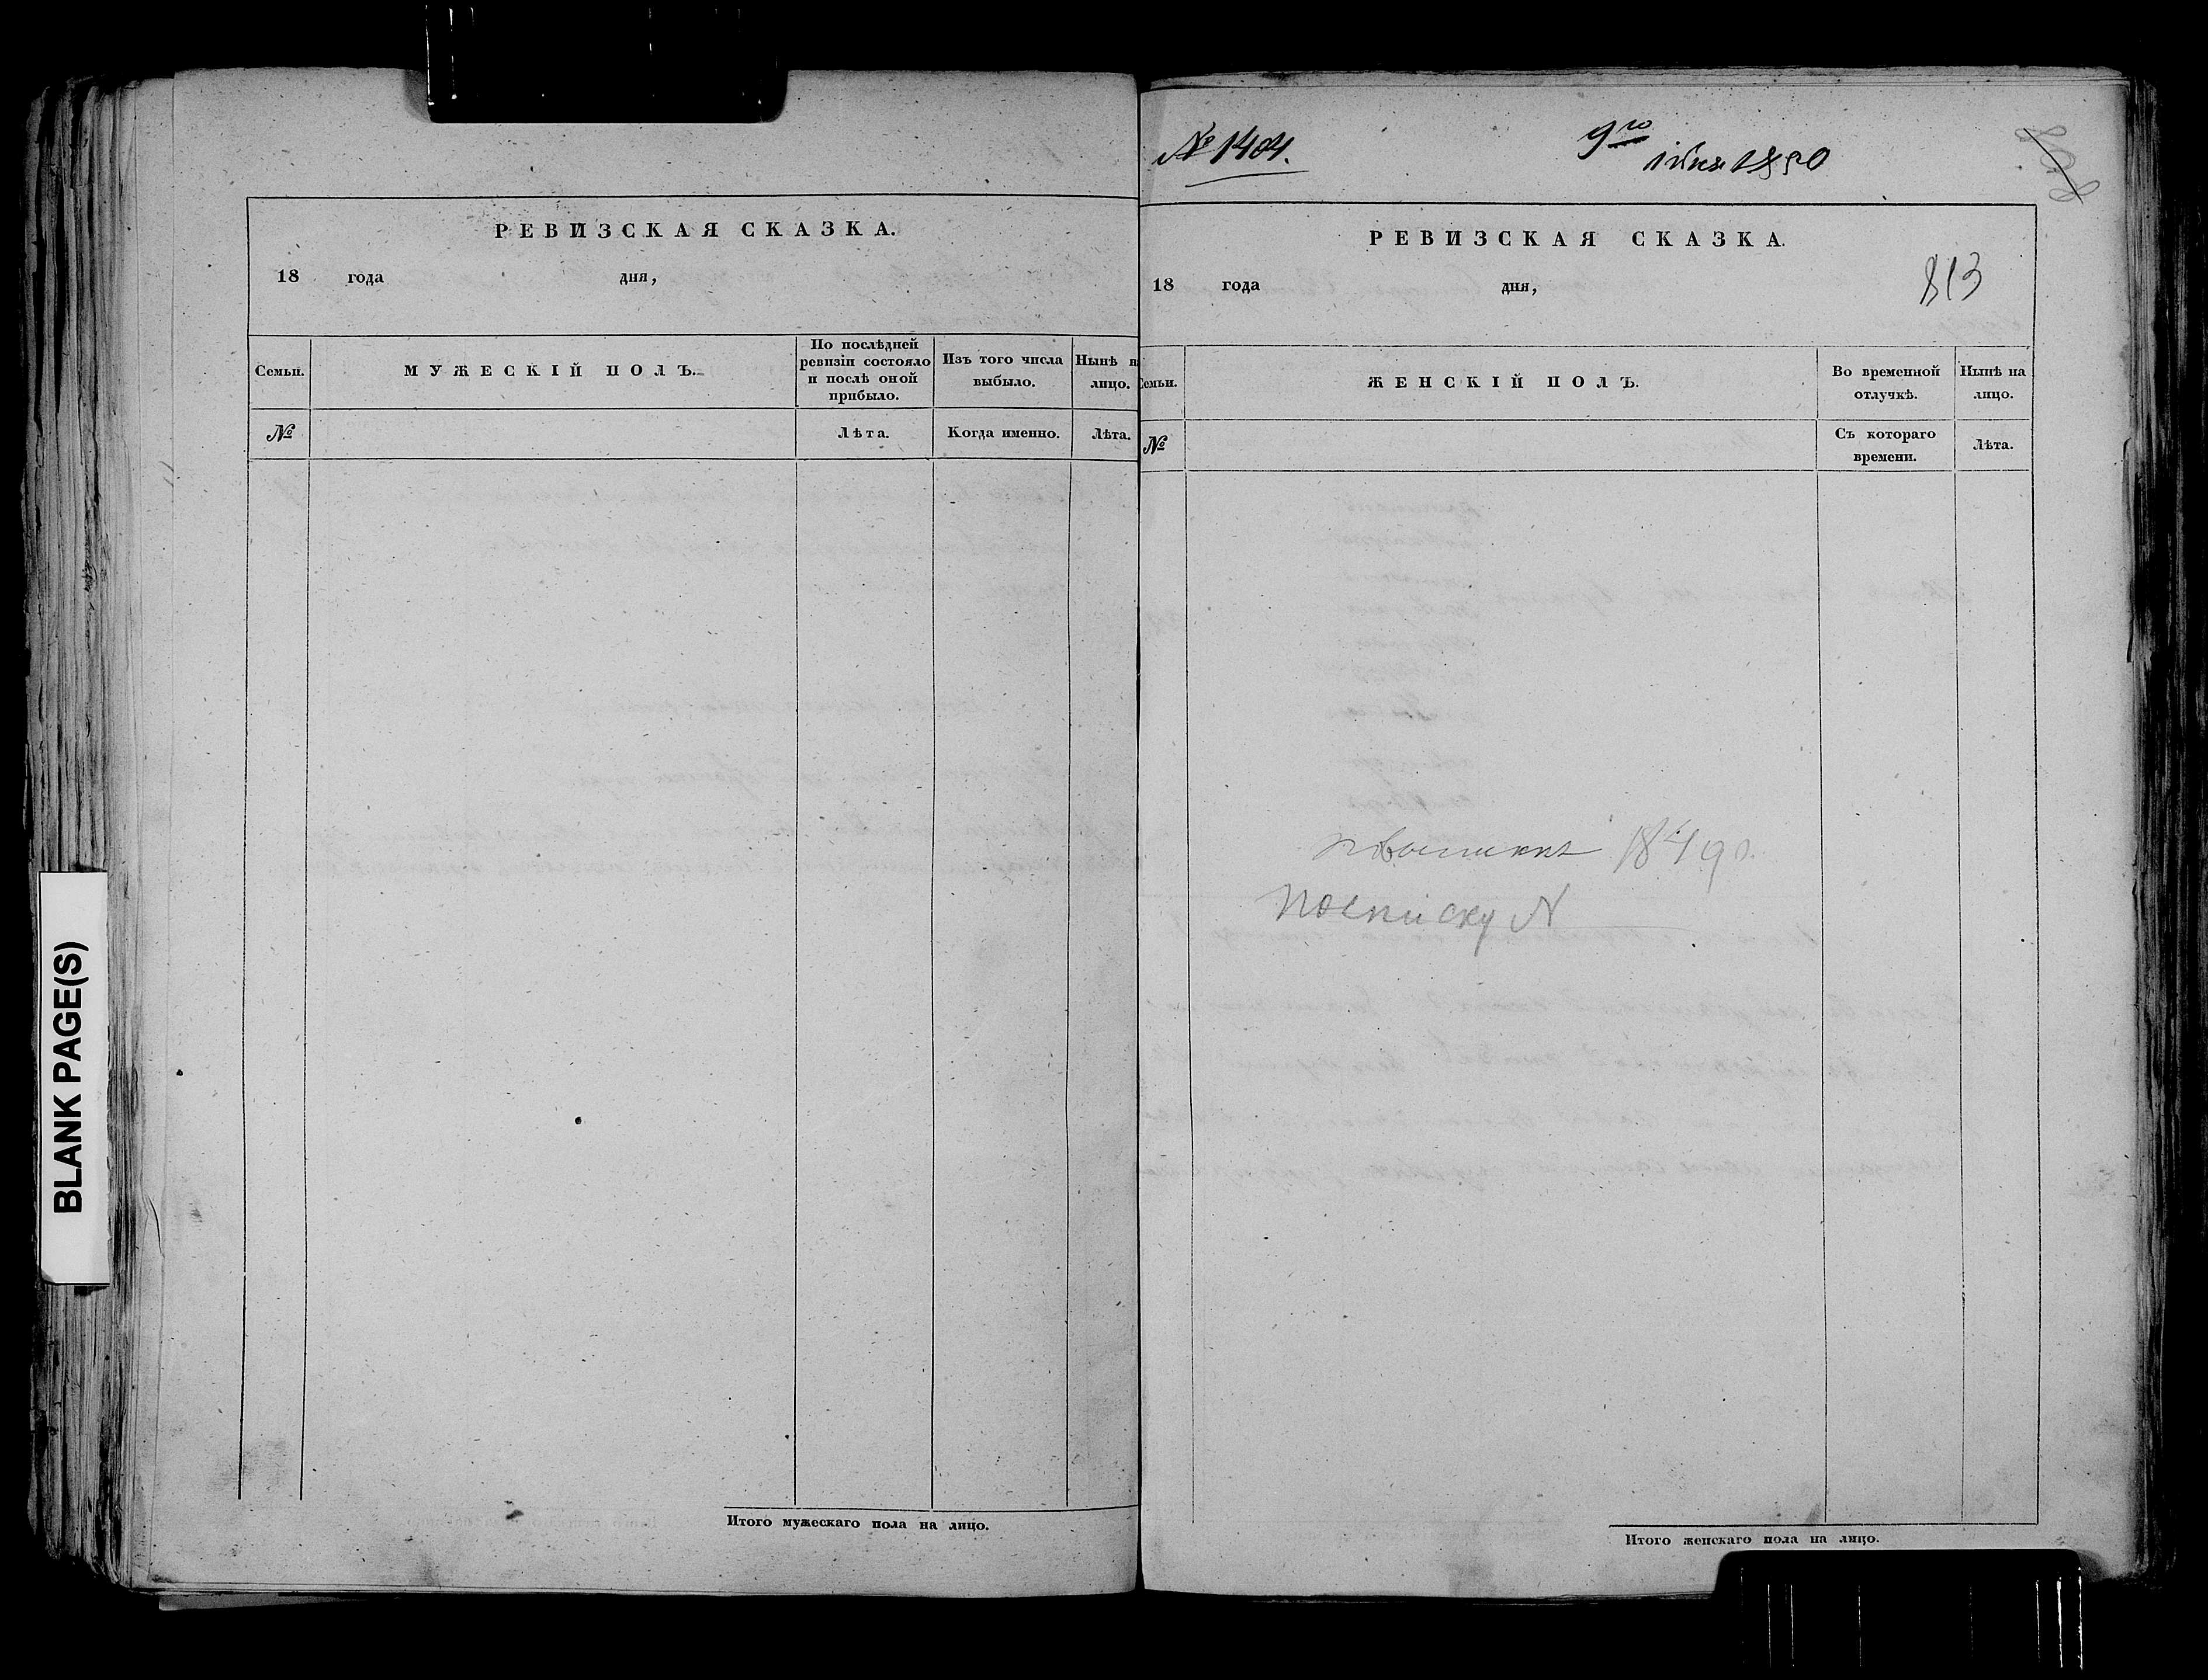 РЕВИЗСКАЯ СКАЗКА.
18 года дня,
Семьи.
МУЖЕСКІЙ ПОЛЪ.
По послѣдней
ревизіи состояло
и послѣ оной
прибыло.
Изъ того числа
выбыло.
Нынѣ н
лицо.
№
Лѣта.
Когда именно.
Лѣта.
Итого мужескаго пола на лицо.
BLANK PAGE(S)
№ 1404.
9го
іюня 1850
РЕВИЗСКАЯ СКАЗКА.
18 года дня,
813
Семьи.
ЖЕНСКІЙ ПОЛЪ.
Во временной
отлучкѣ.
Нынѣ на
лицо.
№
Съ котораго
времени.
Лѣта.
1849
посписку №
Итого женскаго пола на лицо.